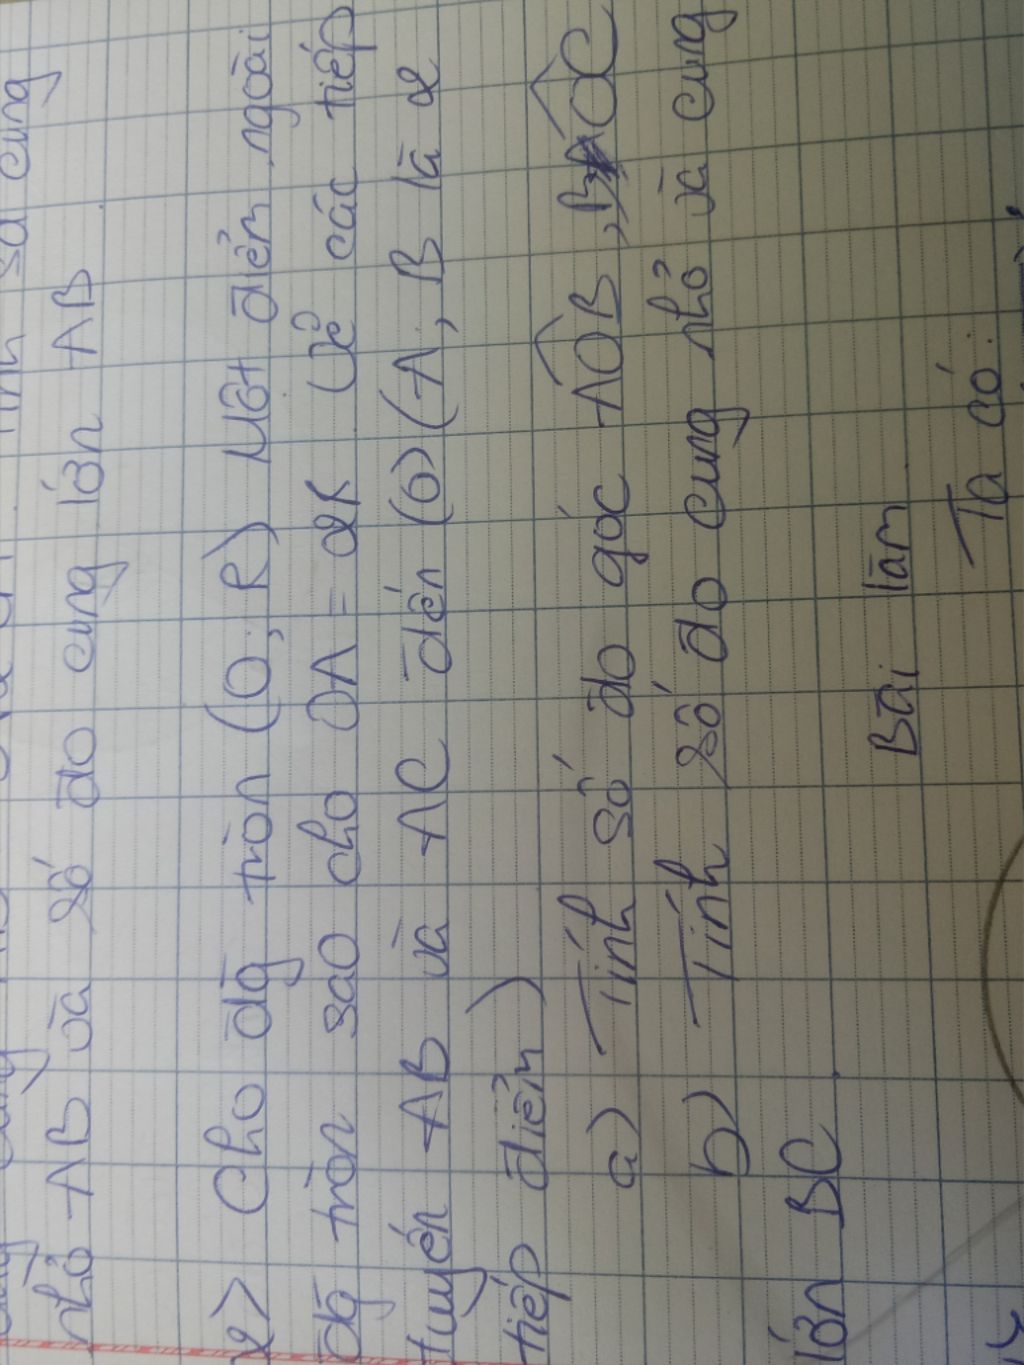 nhỏ AB và số đo cung lớn AB
2> Cho đg tròn (O; R) Một điểm ngoài
đg tròn sao cho OA = 2R Vẽ các tiếp
tuyến AB và AC đến (O) (A, B là 2
tiếp điểm)
a) Tính số đo góc AÔB, BÔC
b) Tính số đo cung nhỏ và cung
lớn BC
Bài làm
Ta có: